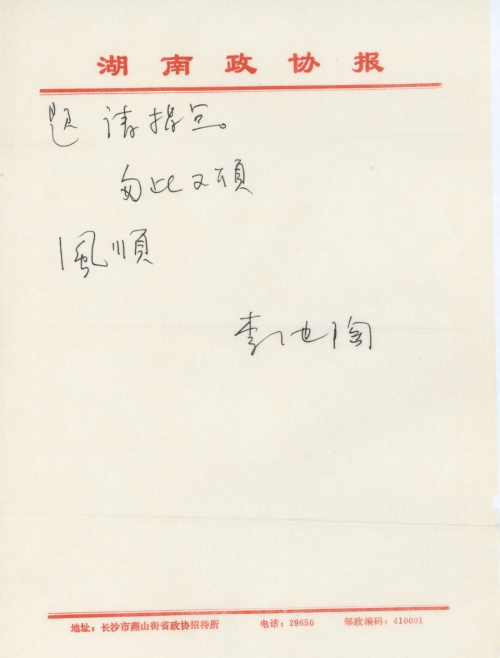 湖南政协报
题 请指正。
匆此又颂
风顺
李
地址：长沙市燕山街省政协招待所 电话：29650 邮政编码：410001